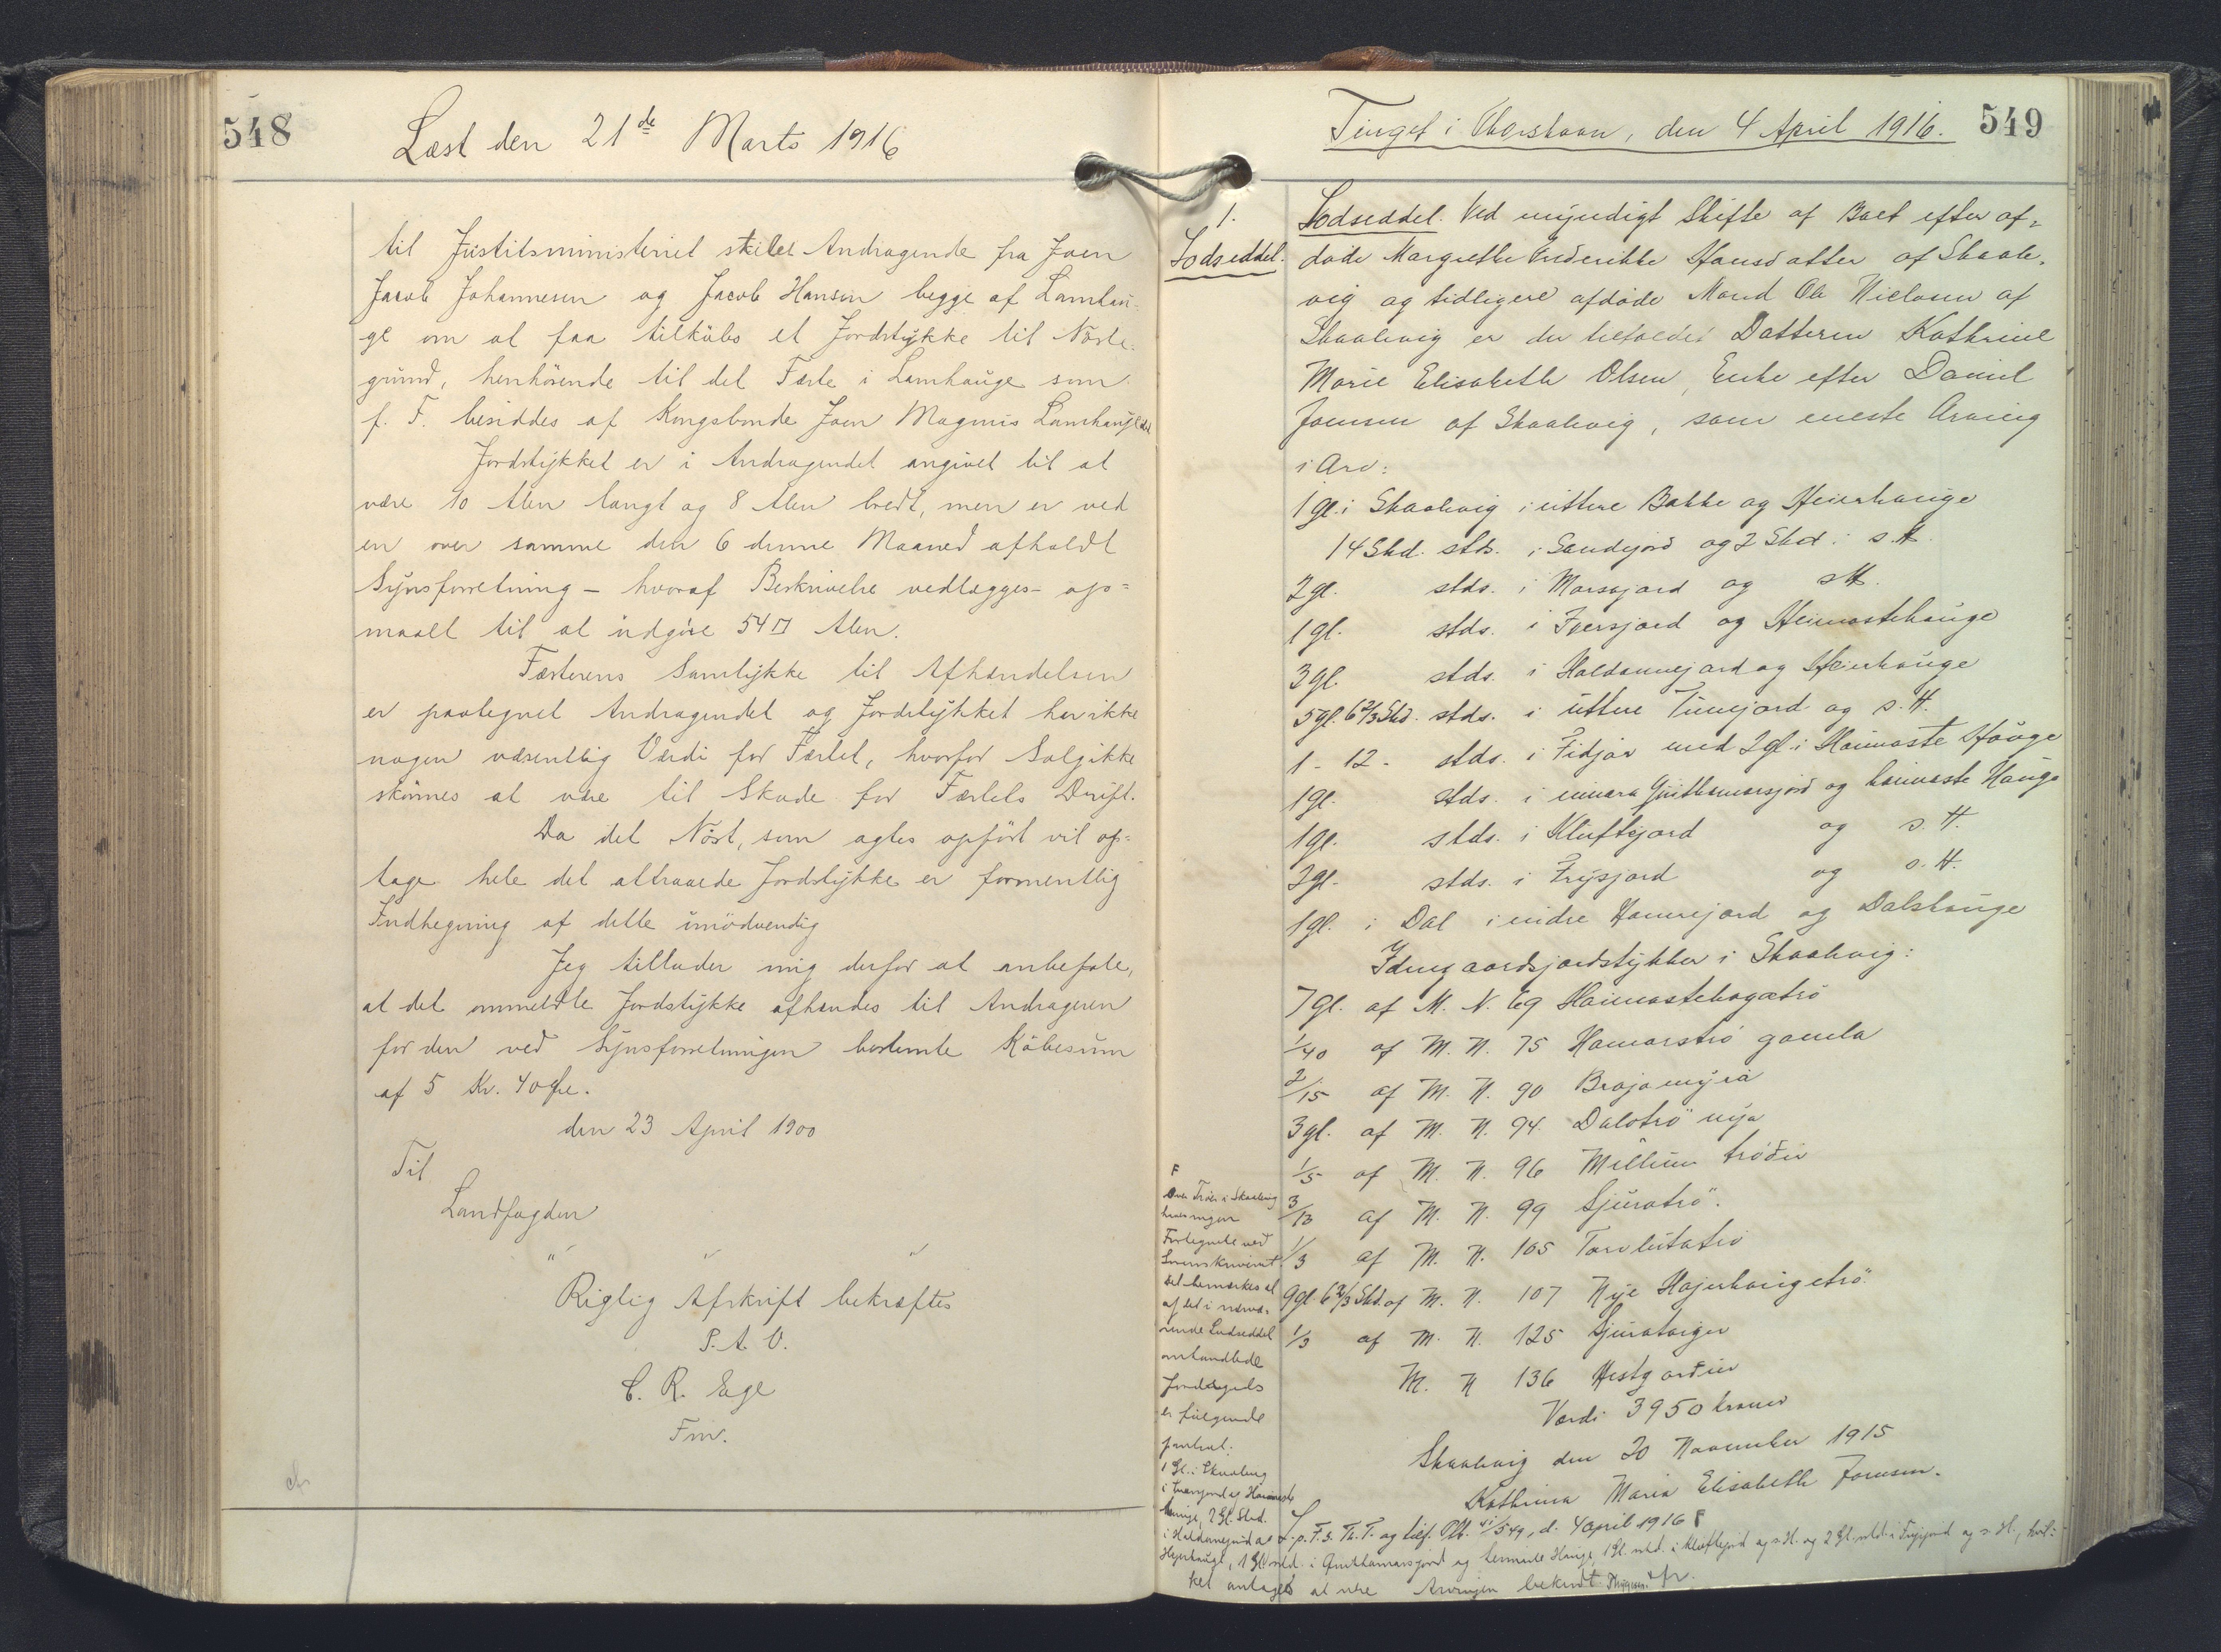 548
Læst den 21de Marts 1916
til Justitsministeriet stilet Andragende fra Joen
Jacob Johannesen og Jacob Hansen begge af Lamhau-
ge om at faa tilkøbs et Jordstykke til Nøste-
grund, henhørende til det Fæste i Lamhauge som
f. T. besiddes af Kongsbonde Joen Magnus Lamhauge
Jordstykket er i Andragendet angivet til at
være 10 Alen langt og 8 Alen bredt, men er ved
en over samme den 6 denne Maaned afholdt
Synsforretning – hvoraf Beskrivelse vedlægges – op=
maalt til at udgøre 54 □ Alen.
Fæsterens Samtykke til Afhændelsen
er paategnet Andragendet og Jordstykket har ikke
nogen væsentlig Værdi for Fæstet, hvorfor Salg ikke
skönnes at være til Skade for Fæstets Drift.
Da det Nöst, som agtes opfört vil op=
tage hele det attraaede Jordstykke er formentlig
Indhegning af dette unödvendig
Jeg tillader mig derfor at anbefale,
at det ommeldte Jordstykke afhændes til Andrageren
for den ved Synsforretningen bestemte Købesum
af 5 Kr. 40 Øre.
den 23 April 1900
Til
Landfogden
" " "
Rigtig Afskrift bekræftes
P. A. V.
C. R. Ege
Fm.
Tinget i Thorshavn, den 4 April 1916.
549
1.
Lodseddel.
Lodseddel. Ved myndigt Skifte af Boet efter af=
døde Margrethe Frederikke Hansdatter af Skaale-
vig og tidligere afdøde Mand Ole Nielsen af
Skaalevig er der tilfaldet Datteren Kathrine
Marie Elisabeth Olsen, Enke efter Daniel
Joensen af Skaalevig, som eneste Arving
i Arv:
1 gl. i Skaalevig i uttere Bakke og Heierhauge
14 Skd. stds. i Sandejord og 2 Skd. i s. H.
2 gl. stds. i Morsajord og s. H.
1 gl. stds. i Iversjord og Heimastehauge
3 gl. stds. i Haldannejord og Heierhauge
5 gl. 6 2/3 Skd. stds. i uttere Tunejord og s. H.
1 - 12 - stds. i Fidjar med 2 gl. i Haimaste Hauge
1 gl. stds. i innara Guttormarsjord og haimaste Hauge
1 gl. stds. i Kluftsjord og s. H.
2 gl. stds. i Frysjord og s. H.
1 gl. i Dal i indre Hamrejord og Dalshauge
Idengaardsjordstykker i Skaalevig:
7 gl. af M. N. 69 Haimastehagatrö
1/40 af M. N. 75 Hamarströ gamla
2/15 af M. N. 90 Brajamyra
3 gl. af M. N. 94 Dalströ nya
1/5 af M. N. 96 Millum tröðir
3/13 af M. N. 99 Sjúratrö.
1/3 af M. N. 105 Torvlutatrö
9 gl. 6 2/3 Skd. af M. N. 107 Nye Hajerhaugetrö
1/3 af M. N. 125
M. N 136 Hestgarður
Værdi 3950 kroner
Skaalevig den 20 November 1915
Kathrina Maria Elisabeth Joensen.
L. p. T. i Th. T. og tilf. Pk. 41/549, d. 4 april 1916
i Skaalevig
hvis ingen
Fortegnelse ved
Sorenskriveriet
det bemærkes at
af det i nærvæ-
rende Lodseddel
omhandlede
Jordegods
er følgende
pantsat:
1 Gl. i Skaalevig
i Iversjord og Haimaste
Hauge, 2 Gl. stds.
i Haldannejord og
Hejerhauge, 1 Gl. stds. i Gutthamarsjord og heimaste Hauge, 1 Gl. stds. i Kluftsjord og s. H. og 2 Gl. stds. i Frysjord og s. H., hvil-
ket antages at være Arvingen bekendt.